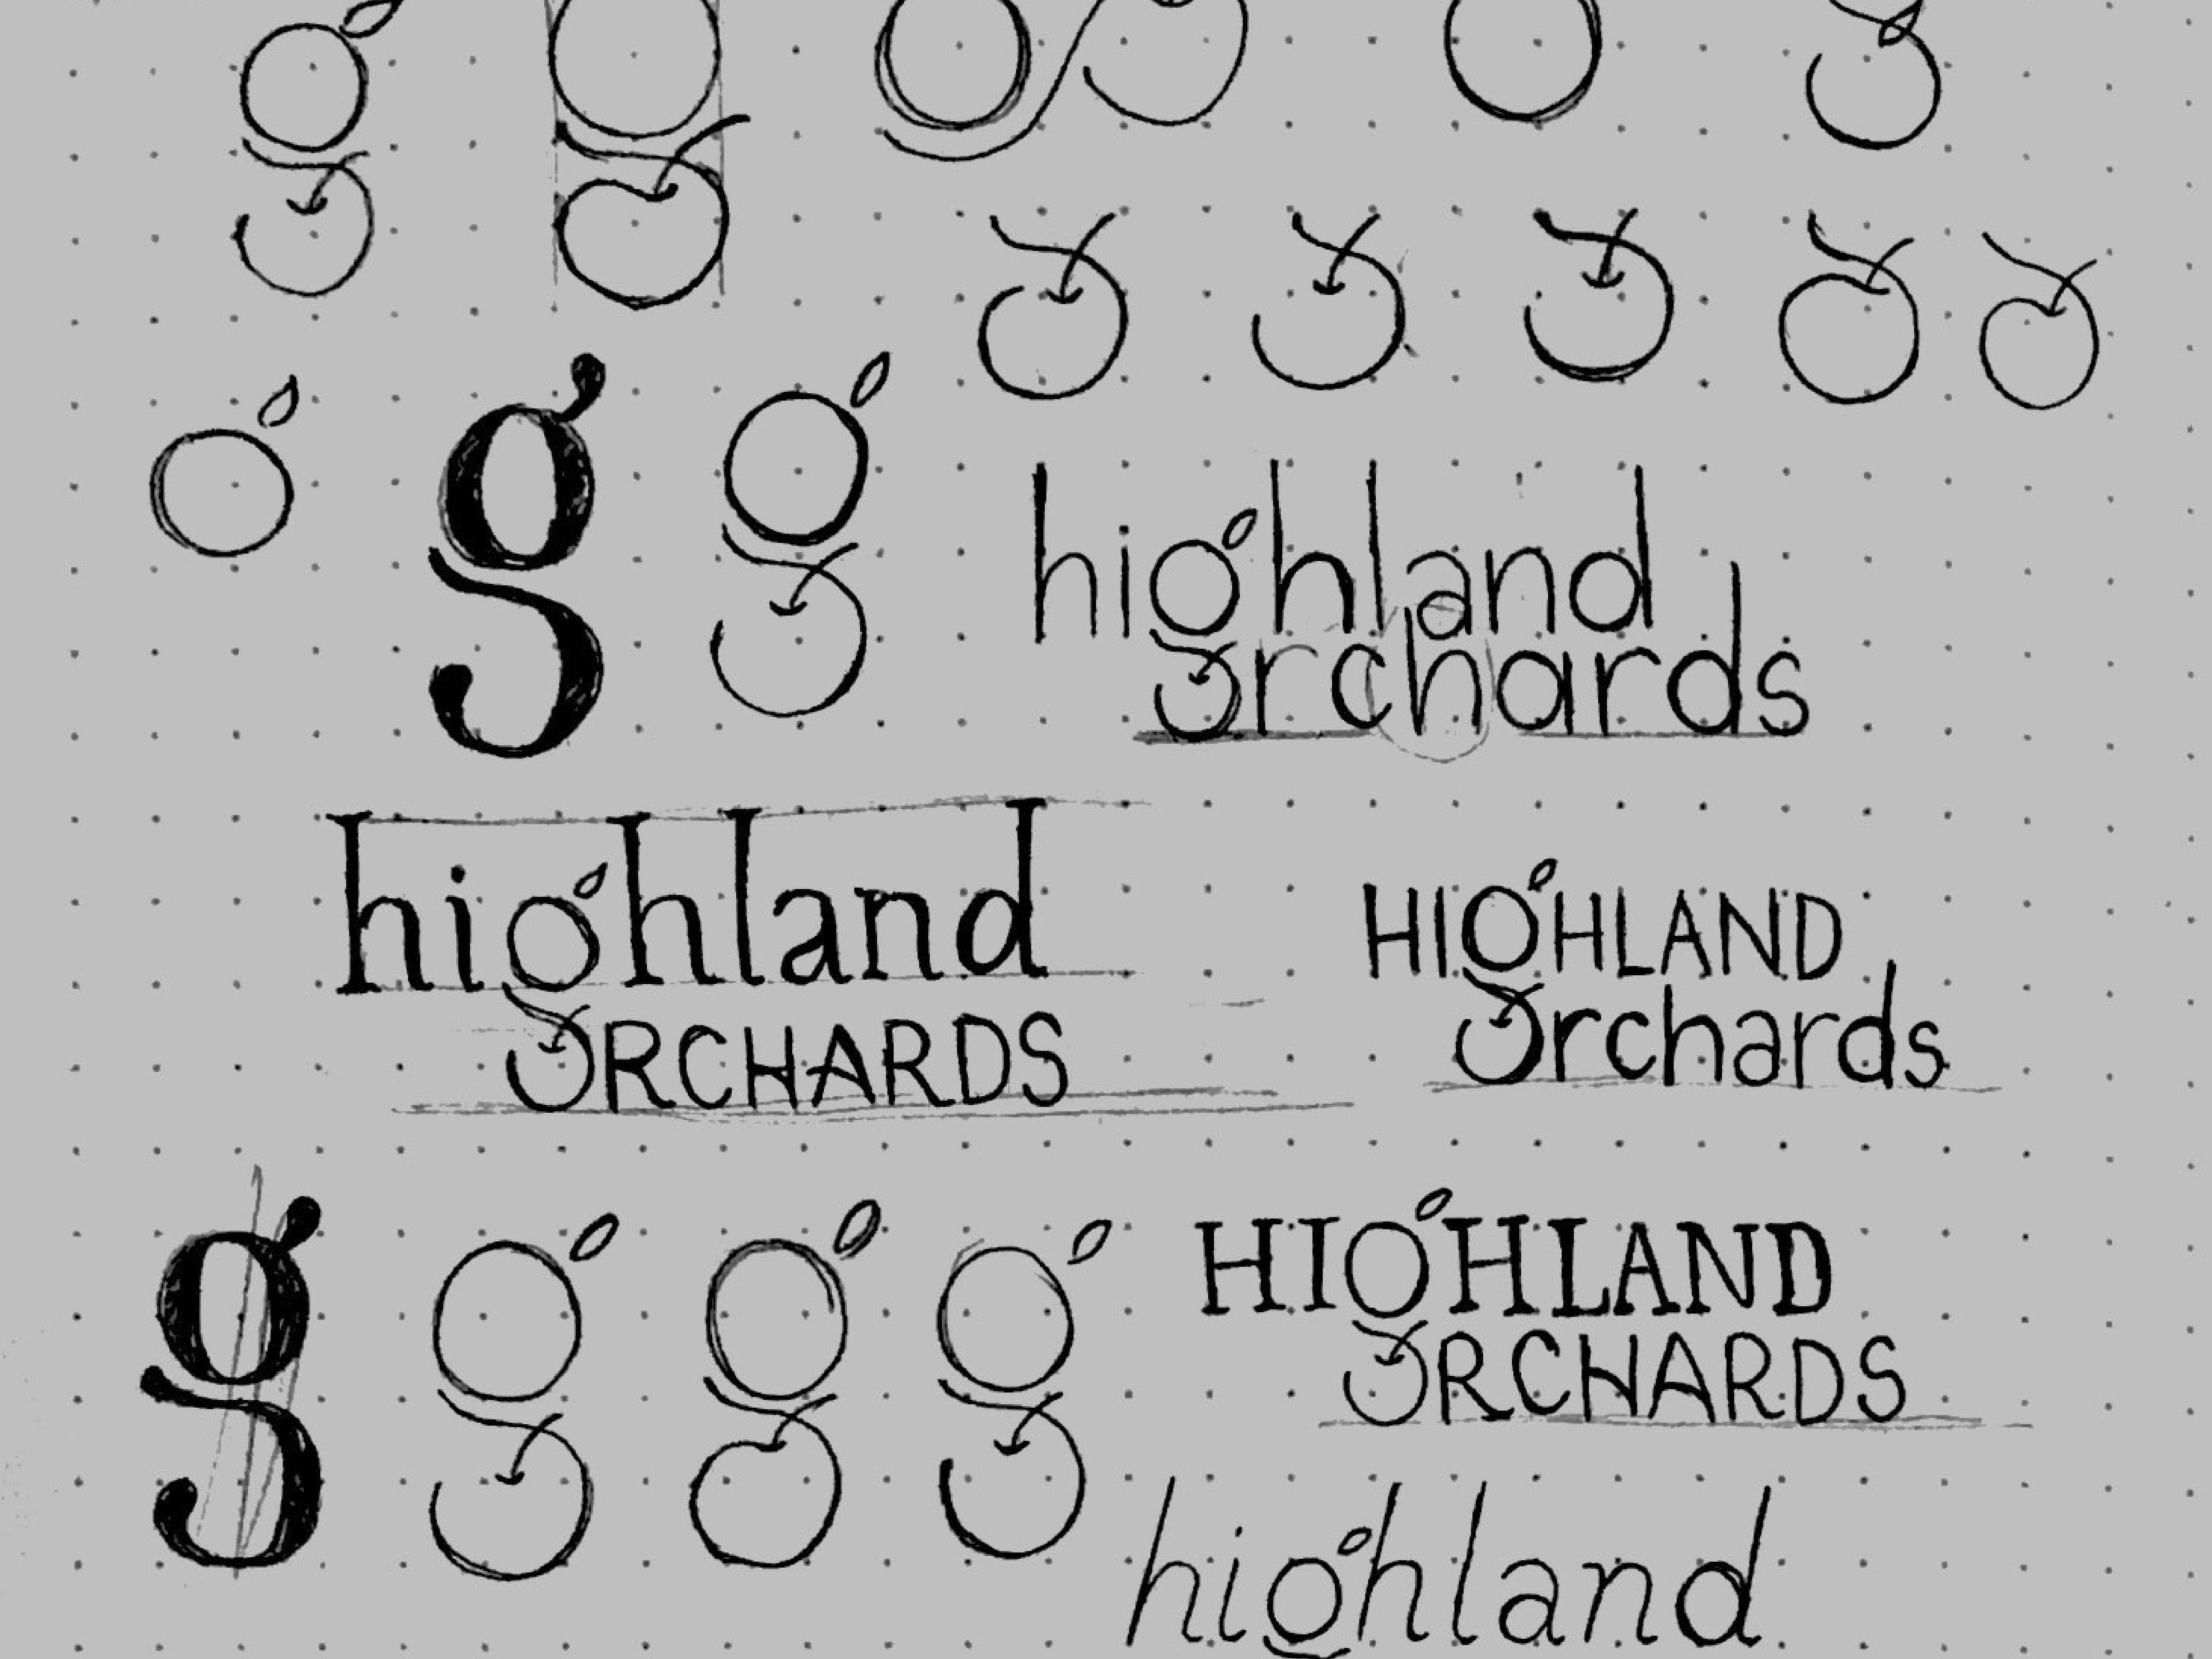 g g
g g
highland
orchards
highland
ORCHARDS
HIGHLAND
orchards
g g g g
HIGHLAND
ORCHARDS
highland